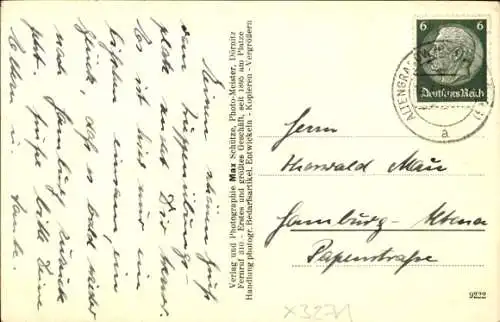 Einen schönen Gruß
vom Truppenübungs-
platz sendet Dir
Es ist hier nur ein
bißchen einsam, ein
Glück, daß es bald wieder
nach Hamburg zurück
geht. Grüße bitte Deine
Eltern u.
Verlag und Photographie Max Schütze, Photo-Meister, Dörnitz
Fernruf 210 - Erstes und größtes Geschäft, seit 1895 am Platze
Handlung photogr. Bedarfsartikel. Entwickeln - Kopieren - Vergrößern
6
Deutsches Reich
ALTENGRABOW
a
Herrn
Thorwald Mau
Hamburg-Altona
Papenstraße
9222
X3271